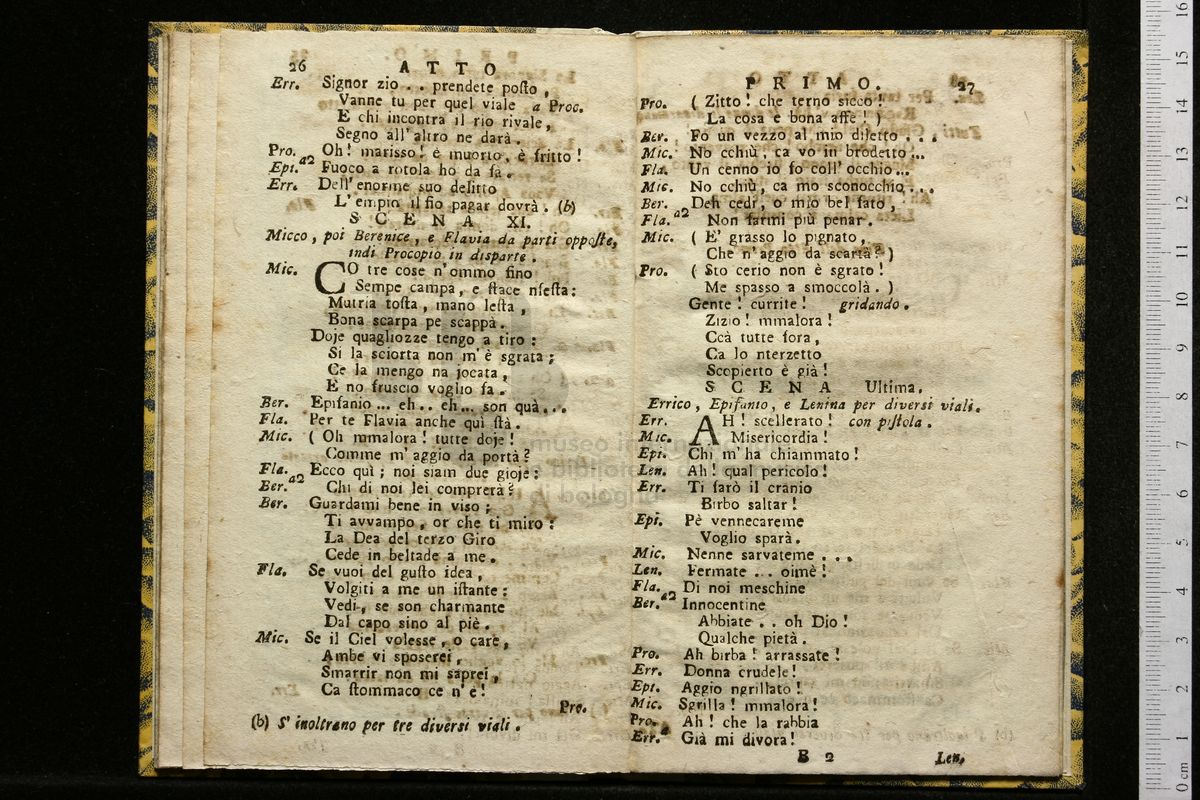 26 ATTO
Err. Signor zio .. prendete poſto,
Vanne tu per quel viale a Proc.
E chi incontra il rio rivale,
Segno all' altro ne darà.
Pro. a2 Oh! marisso! è muorto, è fritto!
Epi. Fuoco a rotola ho da fa.
Err. Dell' enorme suo delitto
L' empio il fio pagar dovrà. (b)
SCENA XI.
Micco, poi Berenice, e Flavia da parti oppoſte,
indi Procopio in disparte.
Mic. CO tre cose n' ommo fino
Sempe campa, e ſtace nſeſta:
Mutria toſta, mano leſta,
Bona scarpa pe scappà.
Doje quagliozze tengo a tiro:
Si la sciorta non m' è sgrata;
Ce la mengo na jocata,
E no fruscio voglio fa.
Ber. Epifanio ... eh .. eh ... son quà ...
Fla. Per te Flavia anche quì ſtà.
Mic. ( Oh mmalora! tutte doje!
Comme m' aggio da portà?
Fla. Ecco quì; noi siam due gioje:
Ber. a2 Chi di noi lei comprerà?
Ber. Guardami bene in viso;
Ti avvampo, or che ti miro:
La Dea del terzo Giro
Cede in beltade a me.
Fla. Se vuoi del guſto idea,
Volgiti a me un iſtante:
Vedi, se son charmante
Dal capo sino al piè.
Mic. Se il Ciel volesse, o care,
Ambe vi sposerei,
Smarrir non mi saprei,
Ca ſtommaco ce n' è!
Pro.
(b) S' inoltrano per tre diversi viali.
PRIMO. 27
Pro. ( Zitto! che terno sicco!
La cosa è bona affè! )
Ber. Fo un vezzo al mio diletto ...
Mic. No cchiù, ca vo in brodetto ...
Fla. Un cenno io fo coll' occhio ...
Mic. No cchiù, ca mo sconocchio ...
Ber. Deh cedi, o mio bel fato,
Fla. a2 Non farmi più penar.
Mic. ( E' grasso lo pignato,
Che n' aggio da scartà? )
Pro. ( Sto cerio non è sgrato!
Me spasso a smoccolà. )
Gente! currite! gridando.
Zizio! mmalora!
Ccà tutte fora,
Ca lo nterzetto
Scopierto è già!
SCENA Ultima.
Errico, Epifanio, e Lenina per diversi viali.
Err. AH! scellerato! con piſtola.
Mic. Misericordia!
Epi. Chi m' ha chiammato!
Len. Ah! qual pericolo!
Err. Ti farò il cranio
Birbo saltar!
Epi. Pè vennecareme
Voglio sparà.
Mic. Nenne sarvateme ...
Len. Fermate ... oimè!
Fla. a2 Di noi meschine
Ber. Innocentine
Abbiate .. oh Dio!
Qualche pietà.
Pro. Ah birba! arrassate!
Err. Donna crudele!
Epi. Aggio ngrillato!
Mic. Sgrilla! mmalora!
Pro. Ah! che la rabbia
Err. Già mi divora!
B 2 Len.
museo internazionale
e biblioteca della musica
di bologna